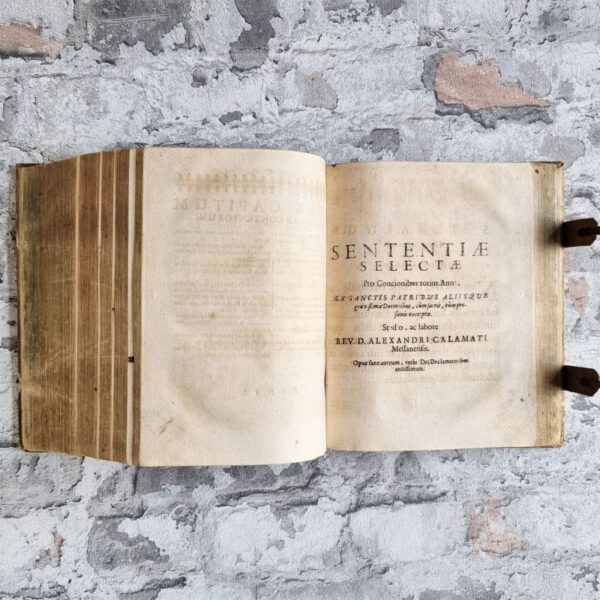 SENTENTIÆ
SELECTÆ
Pro Concionibus totius Anni,
EX SANCTIS PATRIBUS ALIISQUE
gravissimis Doctoribus, cùm sacris, tùm pro-
fanis excerptæ.
Studio, ac labore
REV. D. ALEXANDRI CALAMATI
Messanensis.
Opus sane aureum, verbi Dei Declamatoribus
utilissimum.